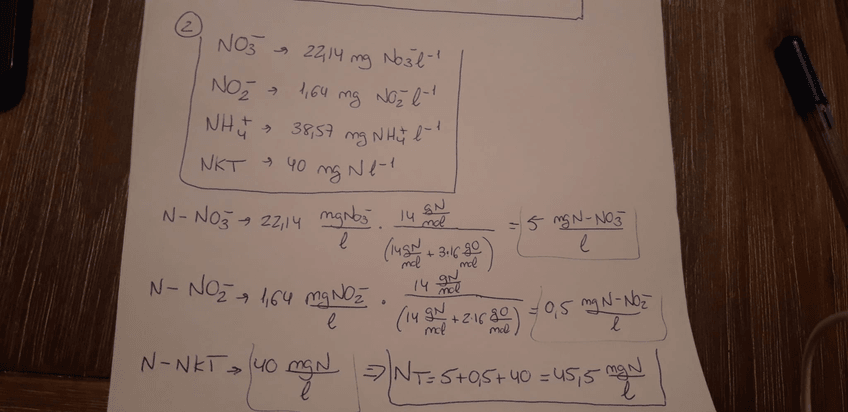 2
NO3⁻ → 22,14 mg No3⁻ l⁻¹
NO2⁻ → 1,64 mg NO2⁻ l⁻¹
NH4⁺ → 38,57 mg NH4⁺ l⁻¹
NKT → 40 mg N l⁻¹
N-NO3⁻ → 22,14 mgNo3⁻/l · 14 gN/mol / (14 gN/mol + 3·16 gO/mol) = 5 mgN-NO3⁻/l
N-NO2⁻ → 1,64 mgNO2⁻/l · 14 gN/mol / (14 gN/mol + 2·16 gO/mol) = 0,5 mgN-NO2⁻/l
N-NKT → 40 mgN/l ⇒ NT = 5+0,5+40 = 45,5 mgN/l